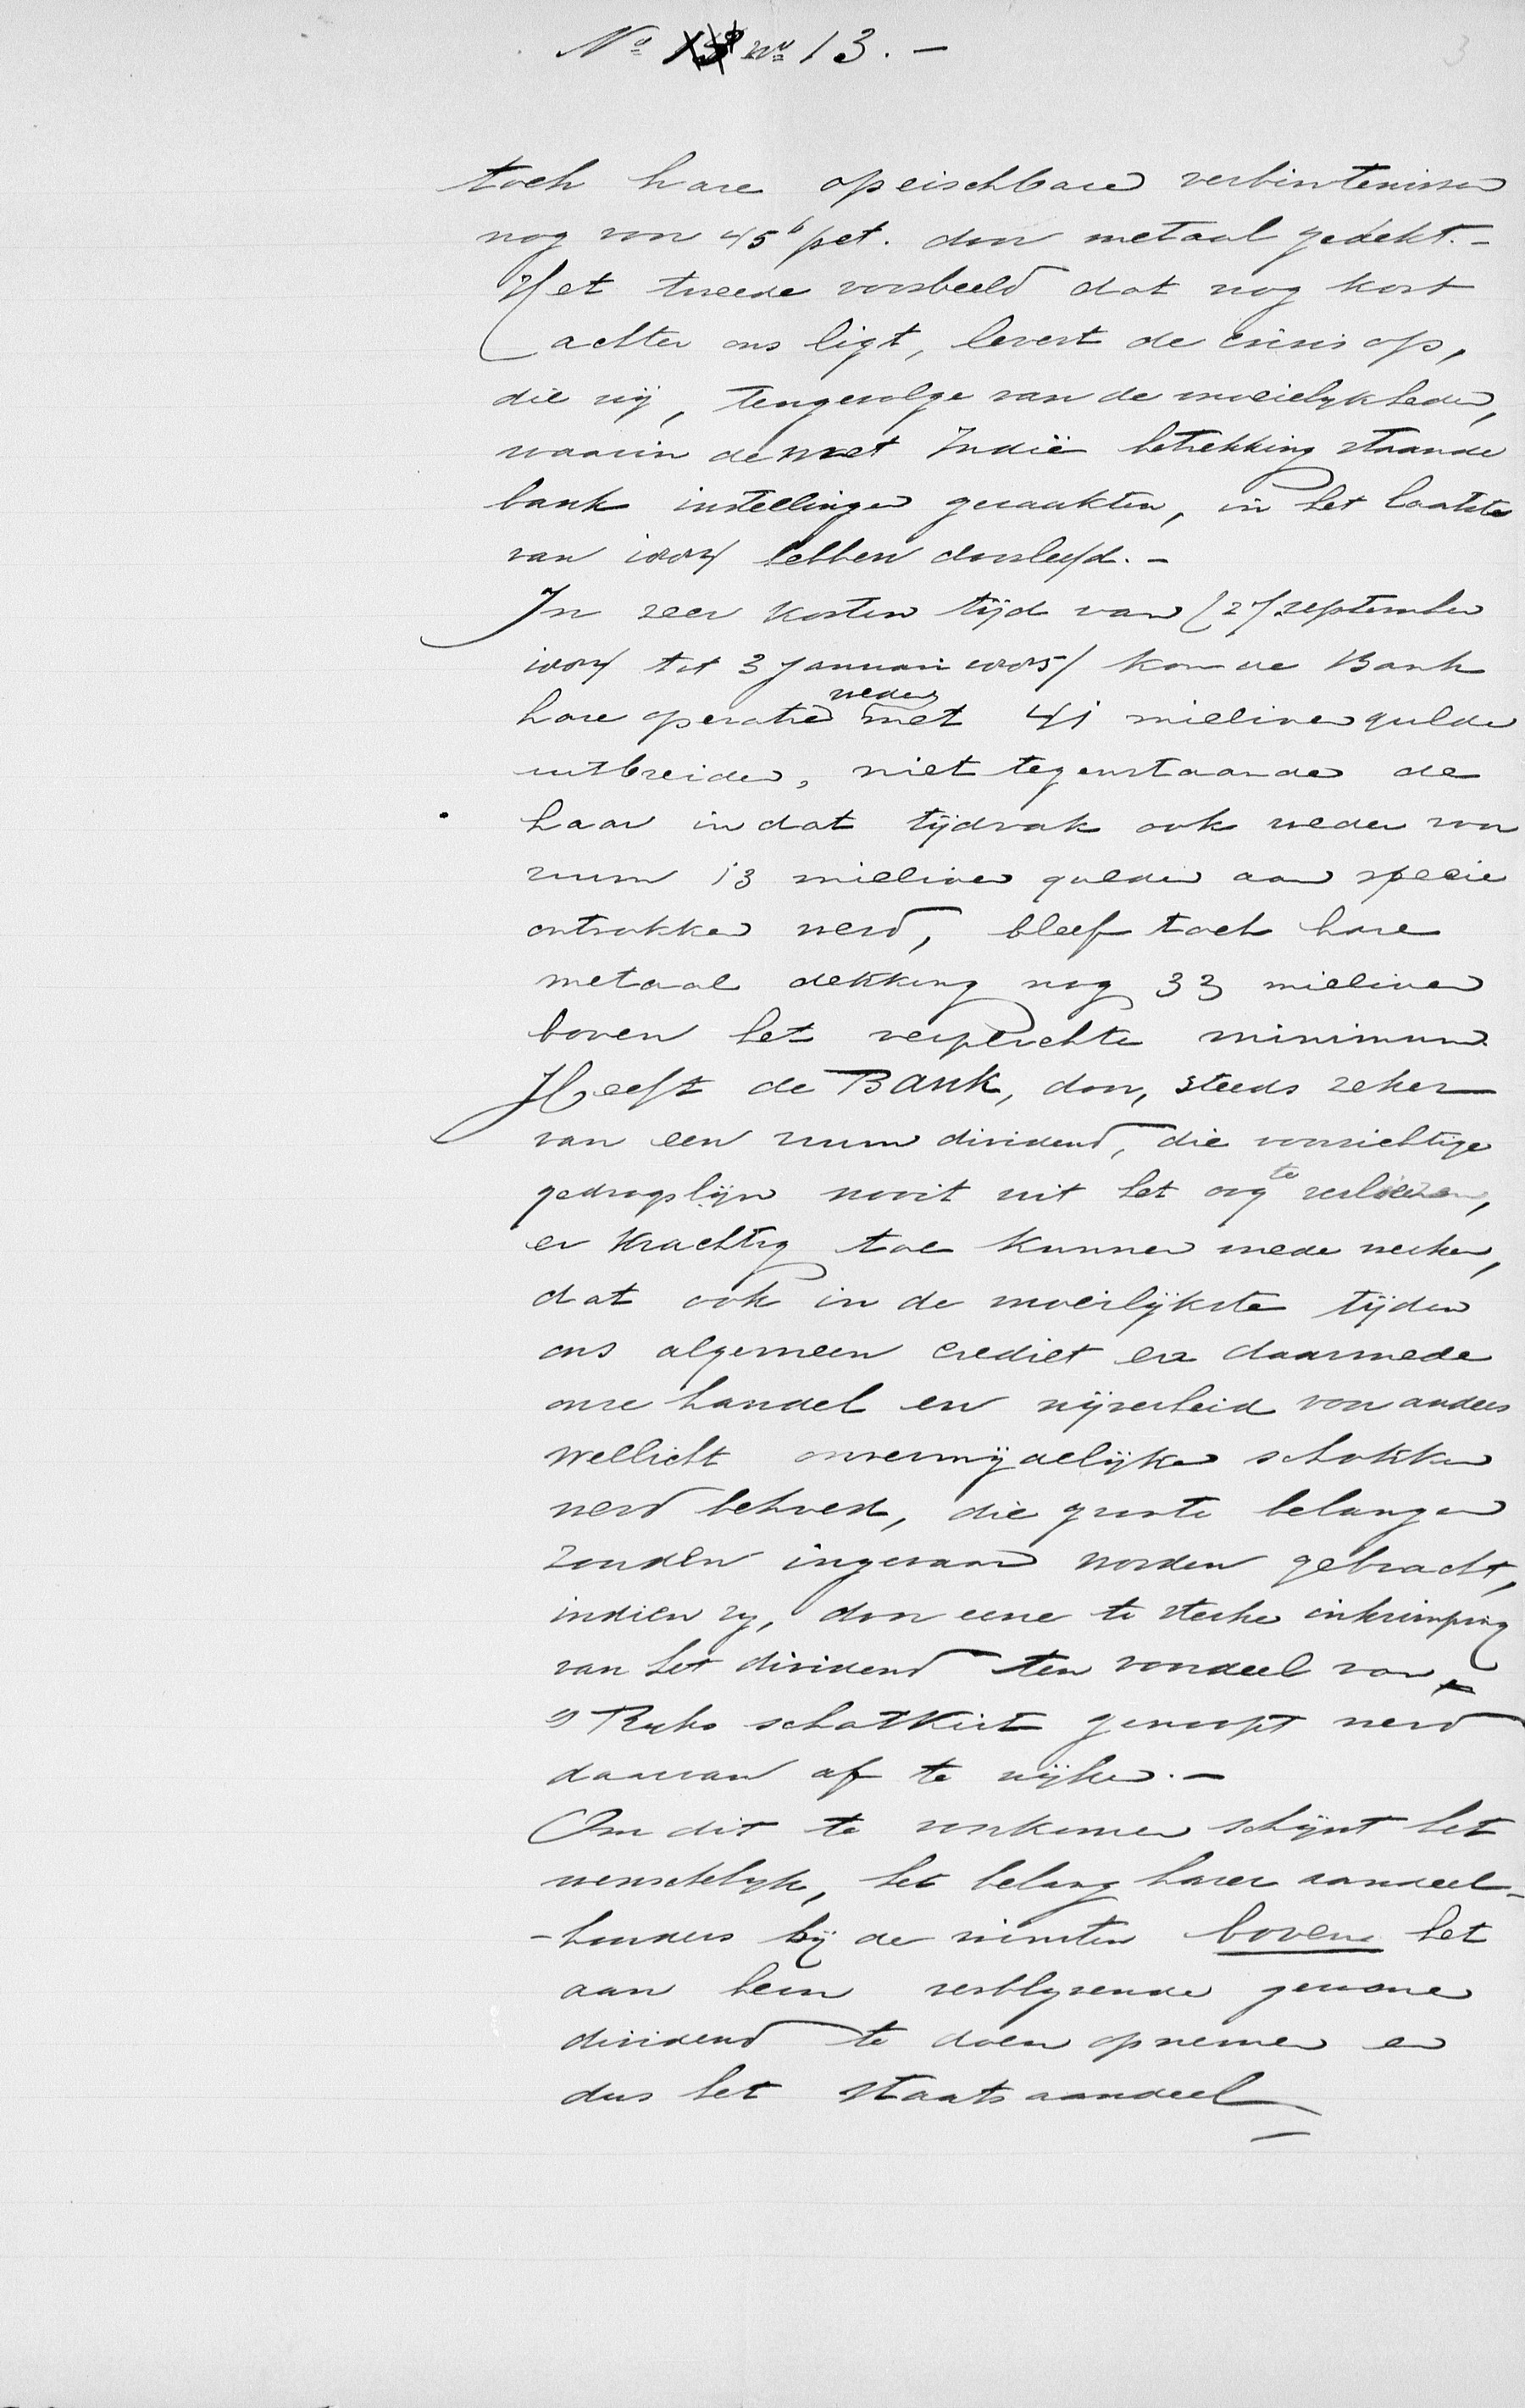 Nº 13.-
3
toch hare opeischbare verbintenissen
nog voor 45⁶ pct. door metaal gedekt.-
Het tweede voorbeeld dat nog kort
achter ons ligt, levert de crisis op,
die wij, tengevolge van de moeielykheden,
waarin de met Indië betrekking staande
bank instellingen geraakten, in het laatste
van 1884 hebben doorleefd.-
In zeer korten tijd van (27 september
1884 tot 3 Januari 1885) kon de Bank
hare operatien weder met 41 millioen gulden
uitbreiden, niet tegenstaande de
haar in dat tijdvak ook weder voor
ruim 13 millioen gulden aan specie
ontrokken werd, bleef toch hare
metaal dekking nog 33 millioen
boven het verplichte minimum
Heeft de Bank, door, steeds zeker
van een ruim dividend, die voorzichtige
gedragslijn nooit uit het oog te verliezen,
er krachtig toe kunnen mede werken,
dat ook in de moeilijkste tijden
ons algemeen crediet en daarmede
onze handel en nijverheid voor anders
wellicht onvermijdelijke schokken
werd behoed, die groote belangen
zouden ingevaar worden gebracht,
indien zy, door eene te sterke inkrimping
van het dividend ten voordeel van
's Ryks schatkist genoopt werd
daarvan af te wijken.-
Om dit te voorkomen schijnt het
wenschelyk, het belang harer aandeel-
-houders bij de winsten boven het
aan hem verblyvende gewone
dividend te doen opnemen en
dus het staats aandeel